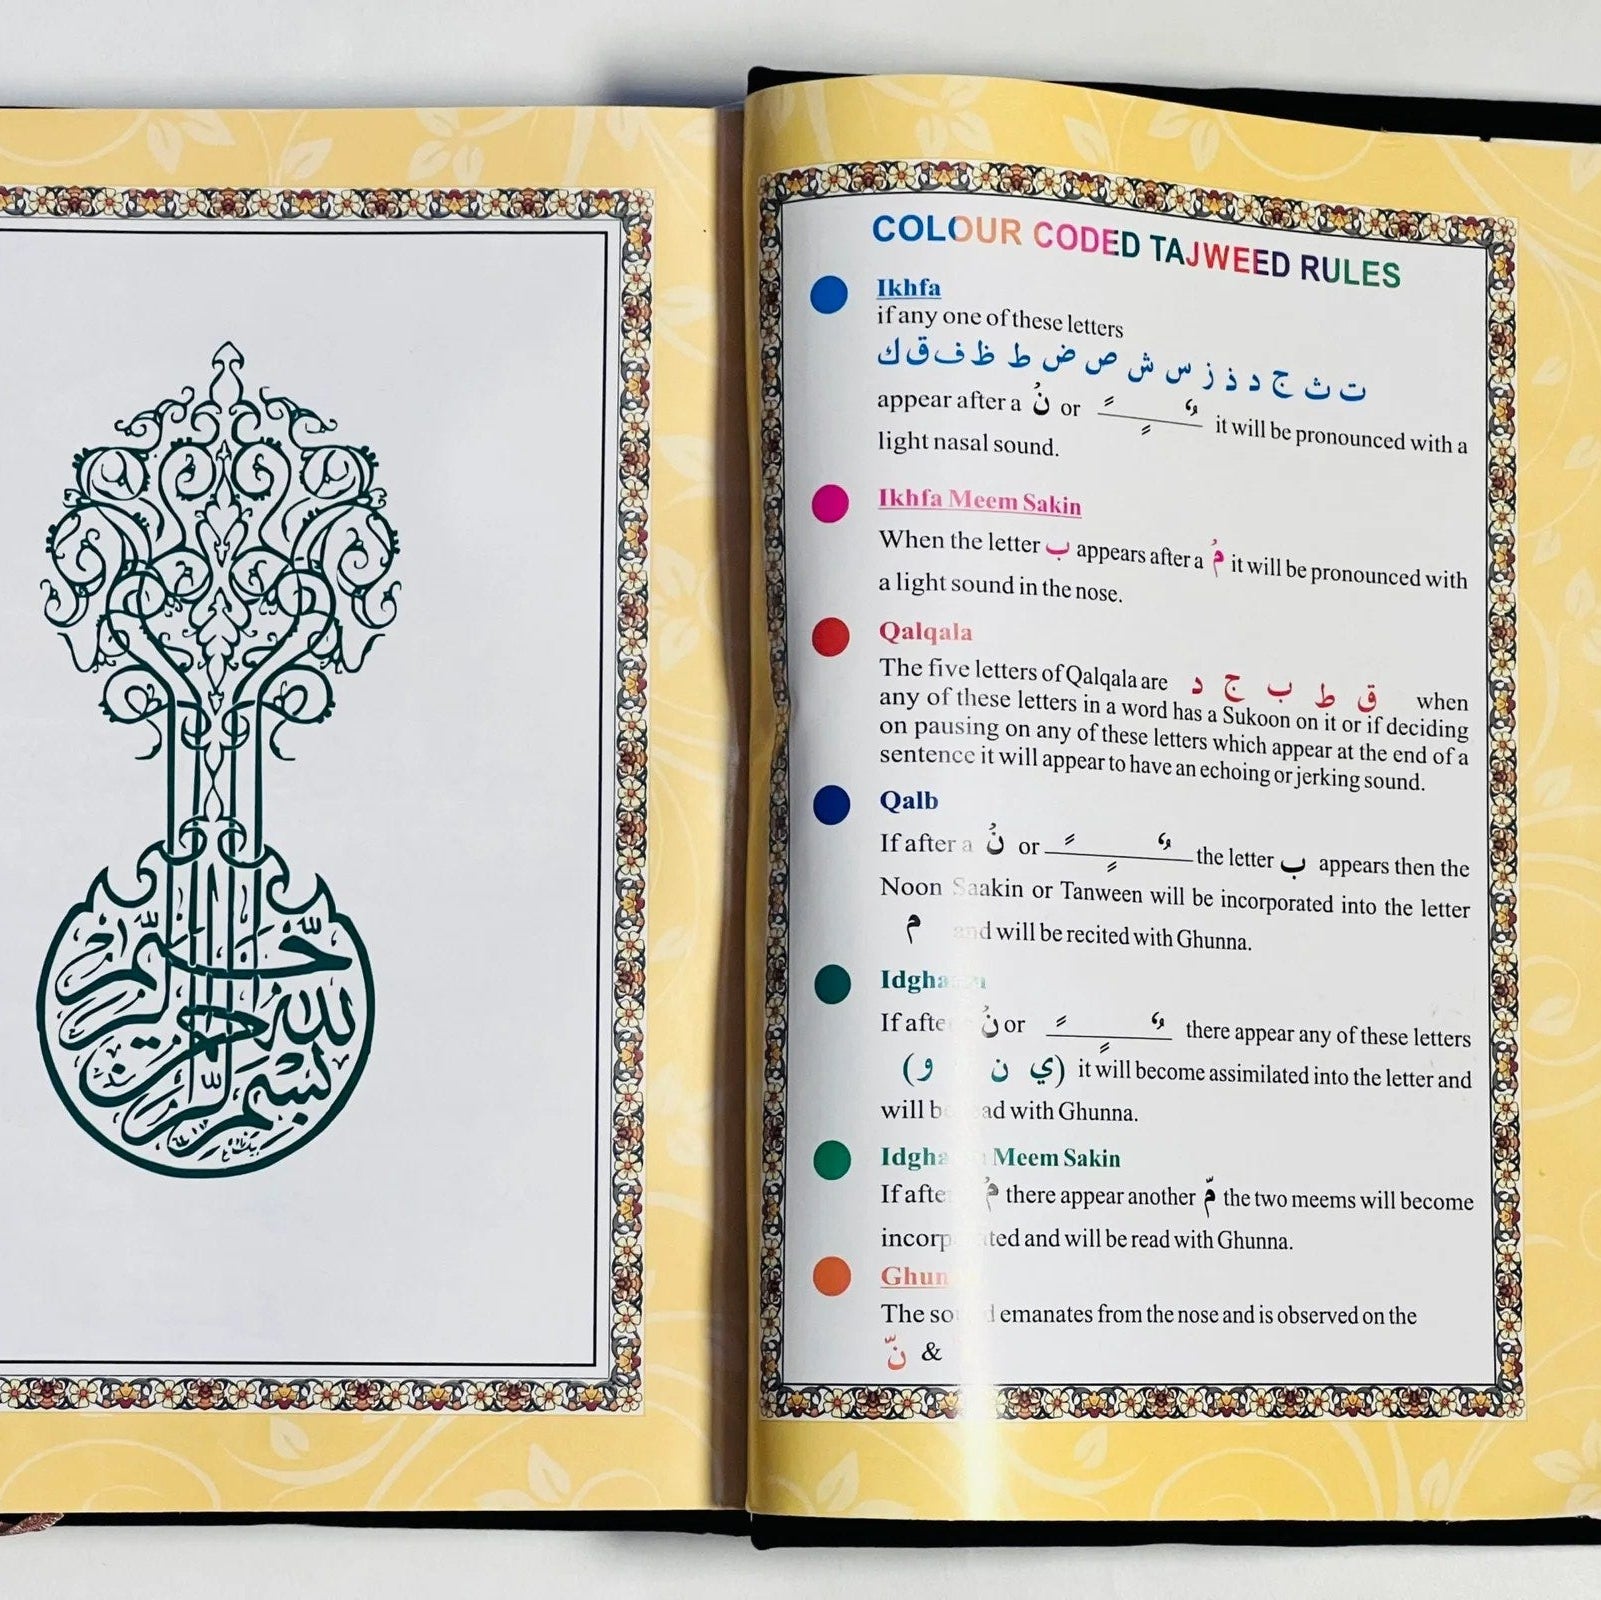 بسم الله الرحمن الرحيم
COLOUR CODED TAJWEED RULES
Ikhfa
if any one of these letters
ت ث ج د ذ ز س ش ص ض ط ظ ف ق ك
appear after a نُ or ـًـٍـٌ it will be pronounced with a
light nasal sound.
Ikhfa Meem Sakin
When the letter ب appears after a مُ it will be pronounced with
a light sound in the nose.
Qalqala
The five letters of Qalqala are د ج ب ط ق when
any of these letters in a word has a Sukoon on it or if deciding
on pausing on any of these letters which appear at the end of a
sentence it will appear to have an echoing or jerking sound.
Qalb
If after a نُ or ـًـٍـٌ the letter ب appears then the
Noon Saakin or Tanween will be incorporated into the letter
م and will be recited with Ghunna.
If نُ or ـًـٍـٌ there appear any of these letters
(ي ن و) it will become assimilated into the letter and
will with Ghunna.
Meem Sakin
If مُ there appear another مّ the two meems will become
and will be read with Ghunna.
The emanates from the nose and is observed on the
نّ &